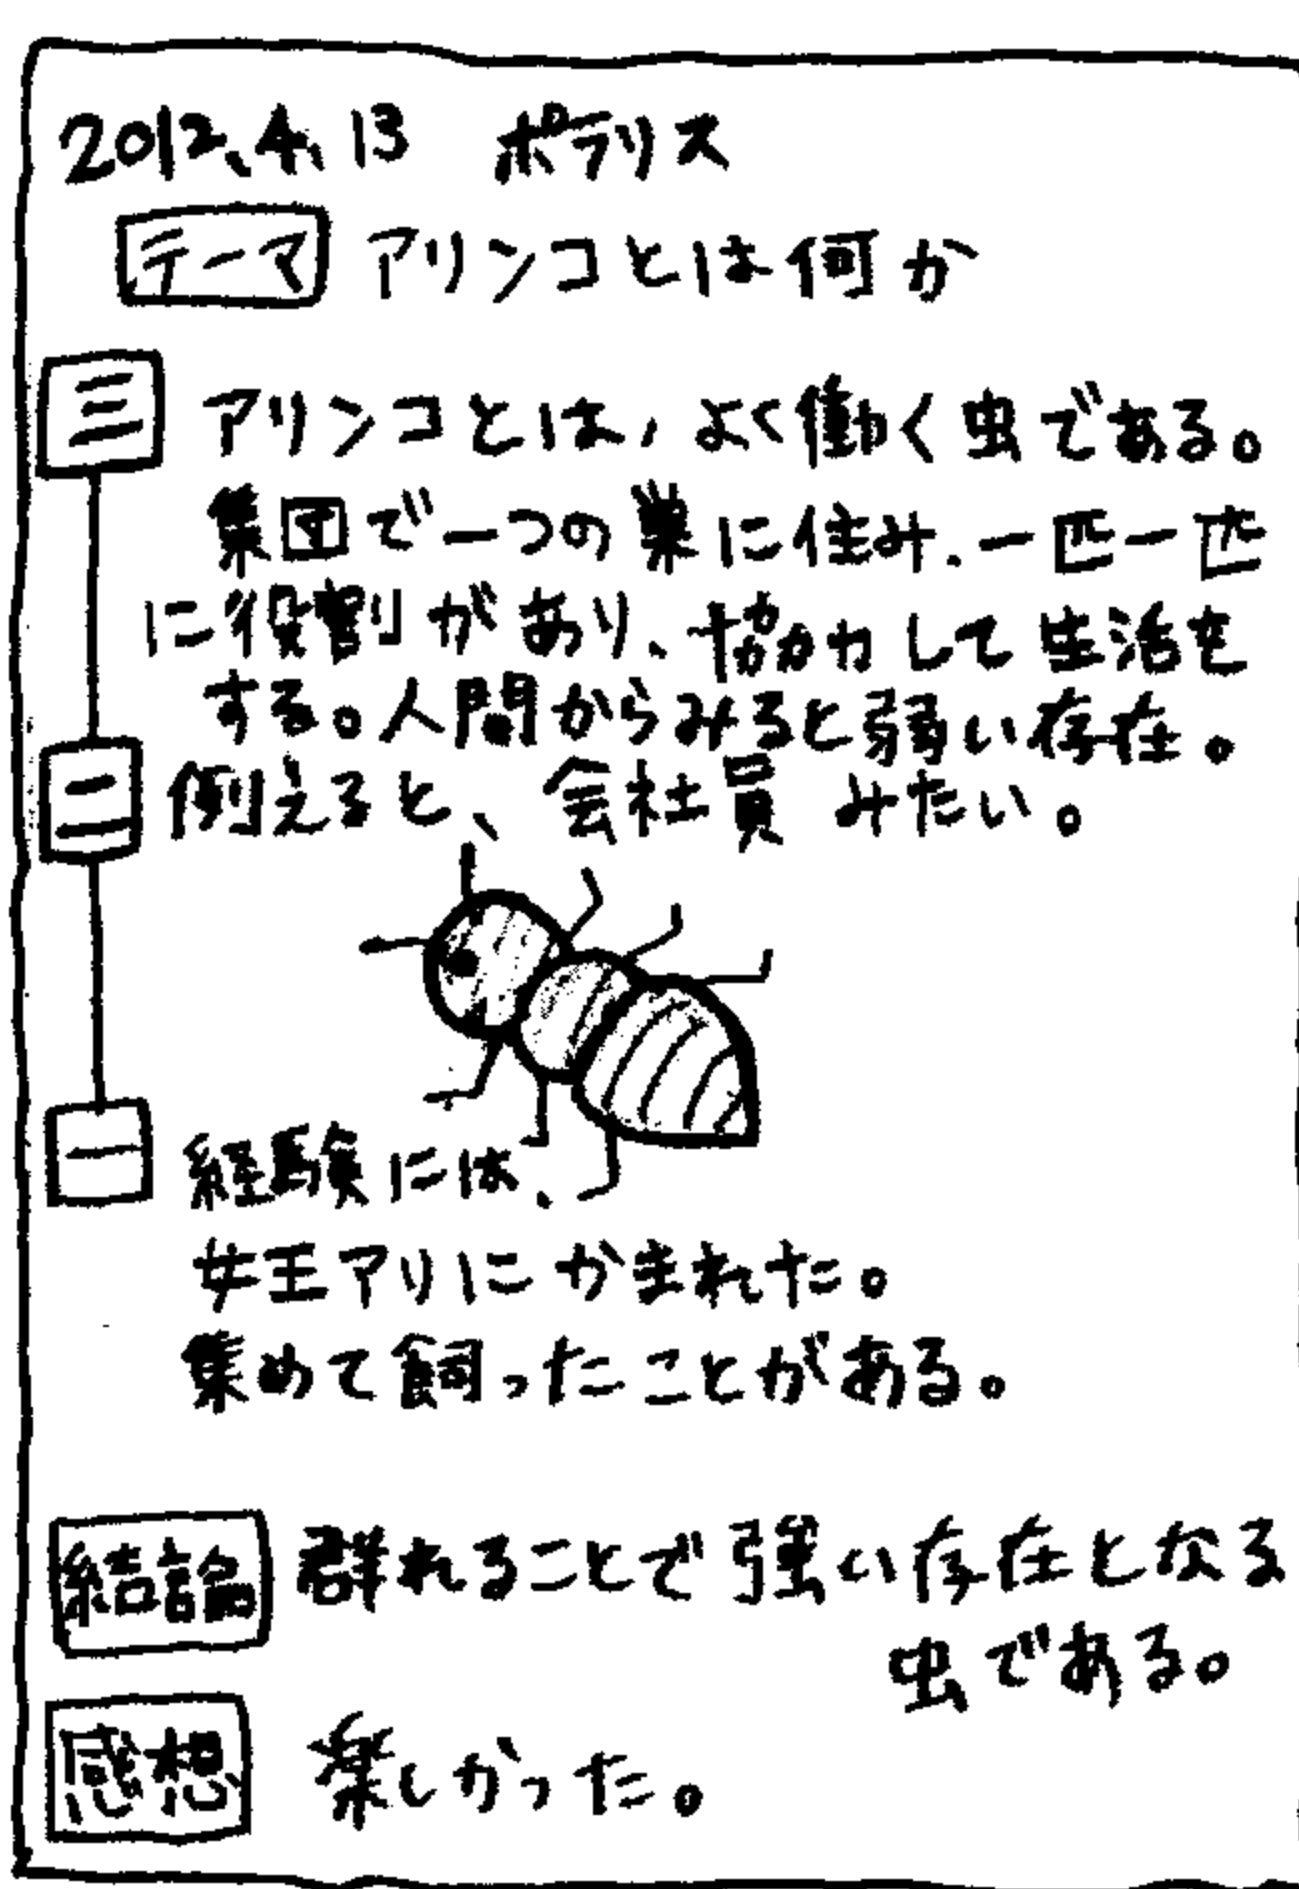 2012.4.13 ポラリス
テーマ アリンコとは何か
三 アリンコとは、よく働く虫である。
集団で一つの巣に住み、一匹一匹
に役割があり、協力して生活を
する。人間からみると弱い存在。
二 例えると、会社員みたい。
一 経験には、
女王アリにかまれた。
集めて飼ったことがある。
結論 群れることで強い存在となる
虫である。
感想 楽しかった。